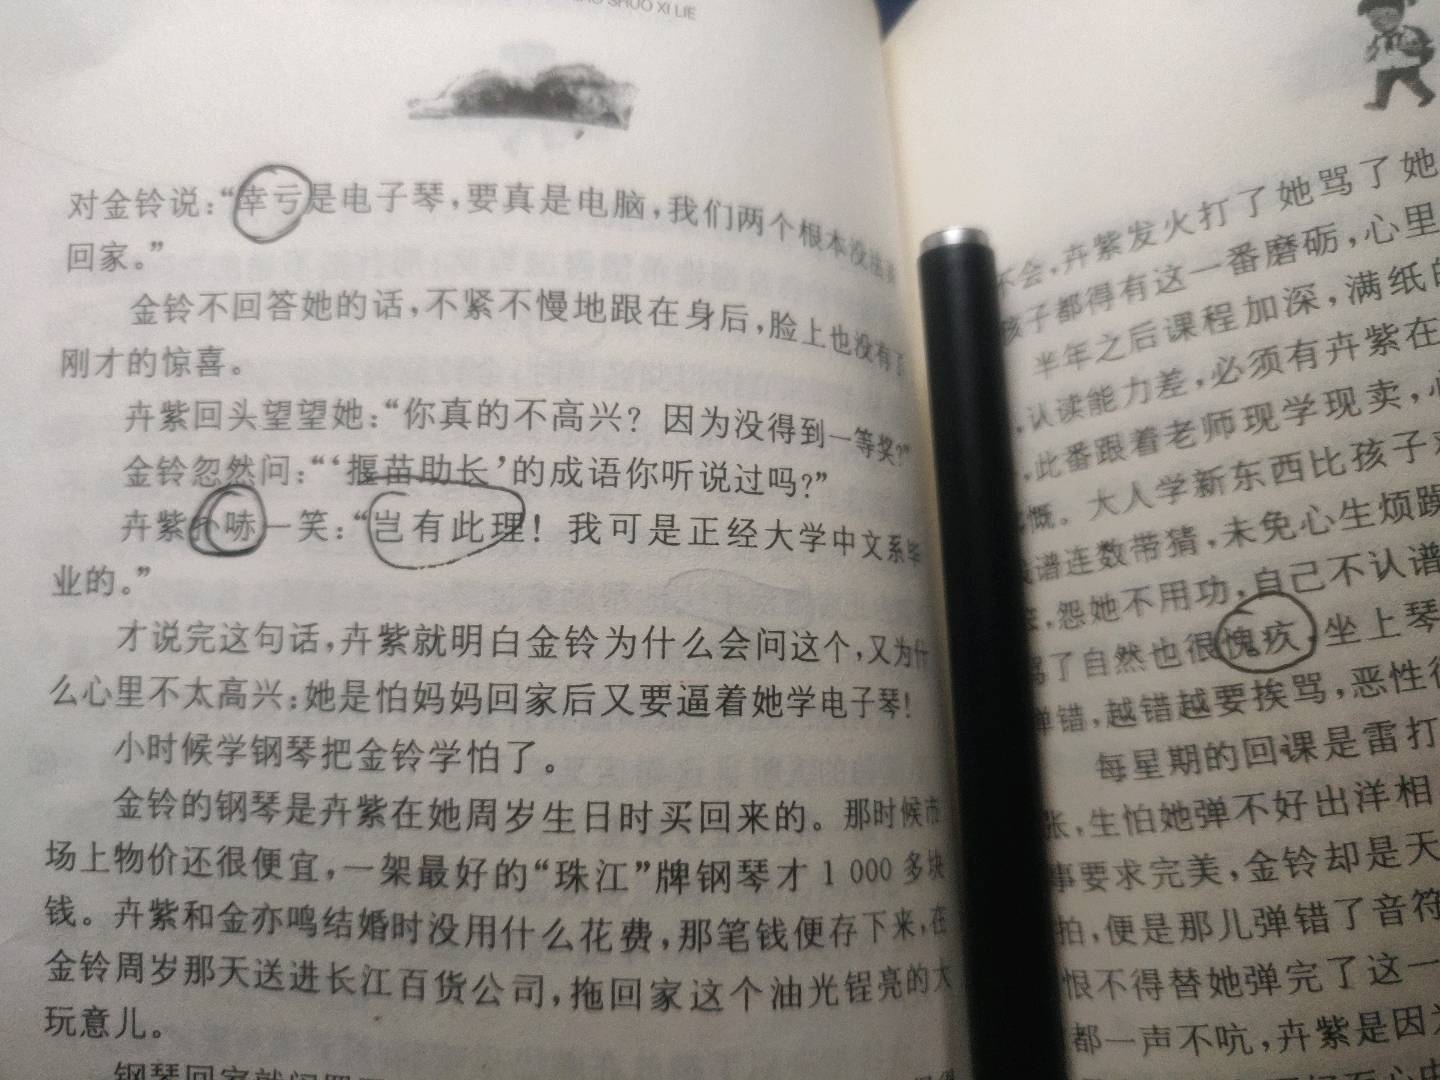 SHUO XI LIE
对金铃说：“幸亏是电子琴，要真是电脑，我们两个根本没法
回家。”
金铃不回答她的话，不紧不慢地跟在身后，脸上也没有了
刚才的惊喜。
卉紫回头望望她：“你真的不高兴？因为没得到一等奖？”
金铃忽然问：“‘揠苗助长’的成语你听说过吗？”
卉紫扑哧一笑：“岂有此理！我可是正经大学中文系毕
业的。”
才说完这句话，卉紫就明白金铃为什么会问这个，又为什
么心里不太高兴：她是怕妈妈回家后又要逼着她学电子琴！
小时候学钢琴把金铃学怕了。
金铃的钢琴是卉紫在她周岁生日时买回来的。那时候市
场上物价还很便宜，一架最好的“珠江”牌钢琴才1 000多块
钱。卉紫和金亦鸣结婚时没用什么花费，那笔钱便存下来，在
金铃周岁那天送进长江百货公司，拖回家这个油光锃亮的大
玩意儿。
钢琴回家就
不会，卉紫发火打了她骂了她
孩子都得有这一番磨砺，心里
半年之后课程加深，满纸的
，认读能力差，必须有卉紫在
，此番跟着老师现学现卖，
慨。大人学新东西比孩子
谱连数带猜，未免心生烦躁
，怨她不用功，自己不认谱
骂了自然也很愧疚，坐上琴
弹错，越错越要挨骂，恶性
每星期的回课是雷打
张，生怕她弹不好出洋相
事要求完美，金铃却是天
拍，便是那儿弹错了音符
恨不得替她弹完了这一
都一声不吭，卉紫是因为